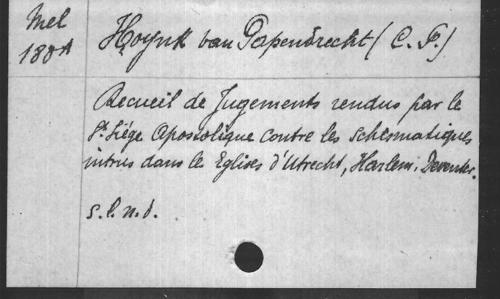 Mel
180A
Hoynk van Papendrecht (C. P.)
Recueil de Jugements rendus par le
St. Siége Apostolique contre les schismatiques
intrus dans le Eglises d'Utrecht, Harlem, Deventer.
s.l.n.d.